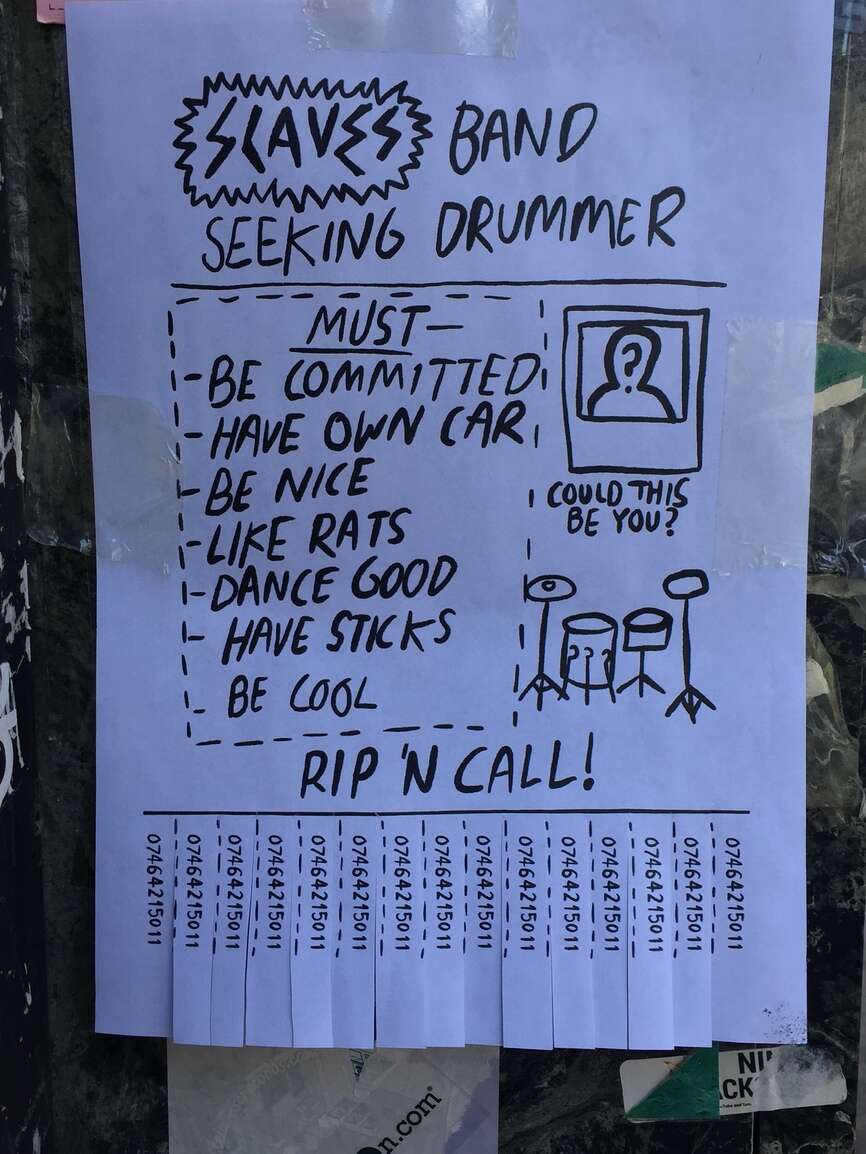 SLAVES BAND
SEEKING DRUMMER
MUST—
- BE COMMITTED
- HAVE OWN CAR
- BE NICE
- LIKE RATS
- DANCE GOOD
- HAVE STICKS
- BE COOL
?
COULD THIS
BE YOU?
???
RIP 'N CALL!
07464215011
07464215011
07464215011
07464215011
07464215011
07464215011
07464215011
07464215011
07464215011
07464215011
07464215011
07464215011
07464215011
07464215011
07464215011
n.com